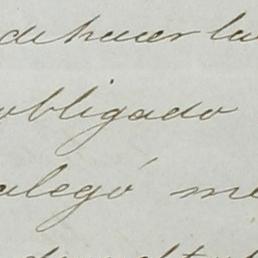 de hacer la
obligado
alegó me